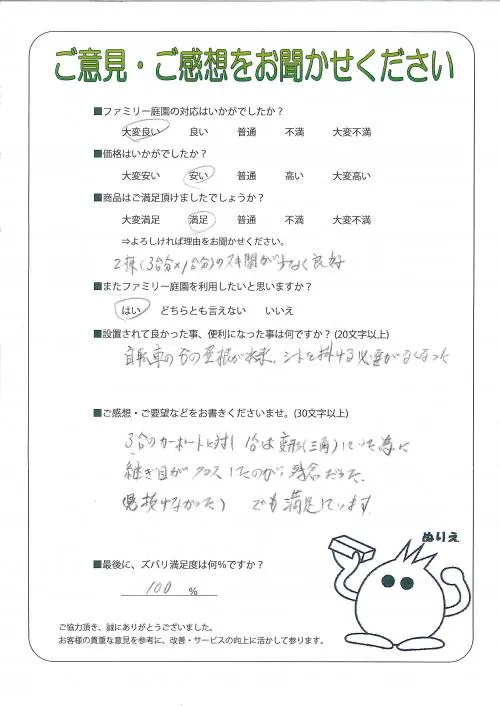 ご意見・ご感想をお聞かせください
■ファミリー庭園の対応はいかがでしたか？
大変良い 良い 普通 不満 大変不満
■価格はいかがでしたか？
大変安い 安い 普通 高い 大変高い
■商品はご満足頂けましたでしょうか？
大変満足 満足 普通 不満 大変不満
⇒よろしければ理由をお聞かせください。
2棟(3台分×1台分)のスキ間が少なく良好
■またファミリー庭園を利用したいと思いますか？
はい どちらとも言えない いいえ
■設置されて良かった事、便利になった事は何ですか？(20文字以上)
自転車の台の屋根が出来、シートを掛ける必要がなくなった
■ご感想・ご要望などをお書きくださいませ。(30文字以上)
3台のカーポートに対し1台は変形(三角)していた為に
継ぎ目がクロスしたのが、残念だった
でも満足しています。
ぬりえ
■最後に、ズバリ満足度は何％ですか？
100 ％
ご協力頂き、誠にありがとうございました。
お客様の貴重な意見を参考に、改善・サービスの向上に活かして参ります。